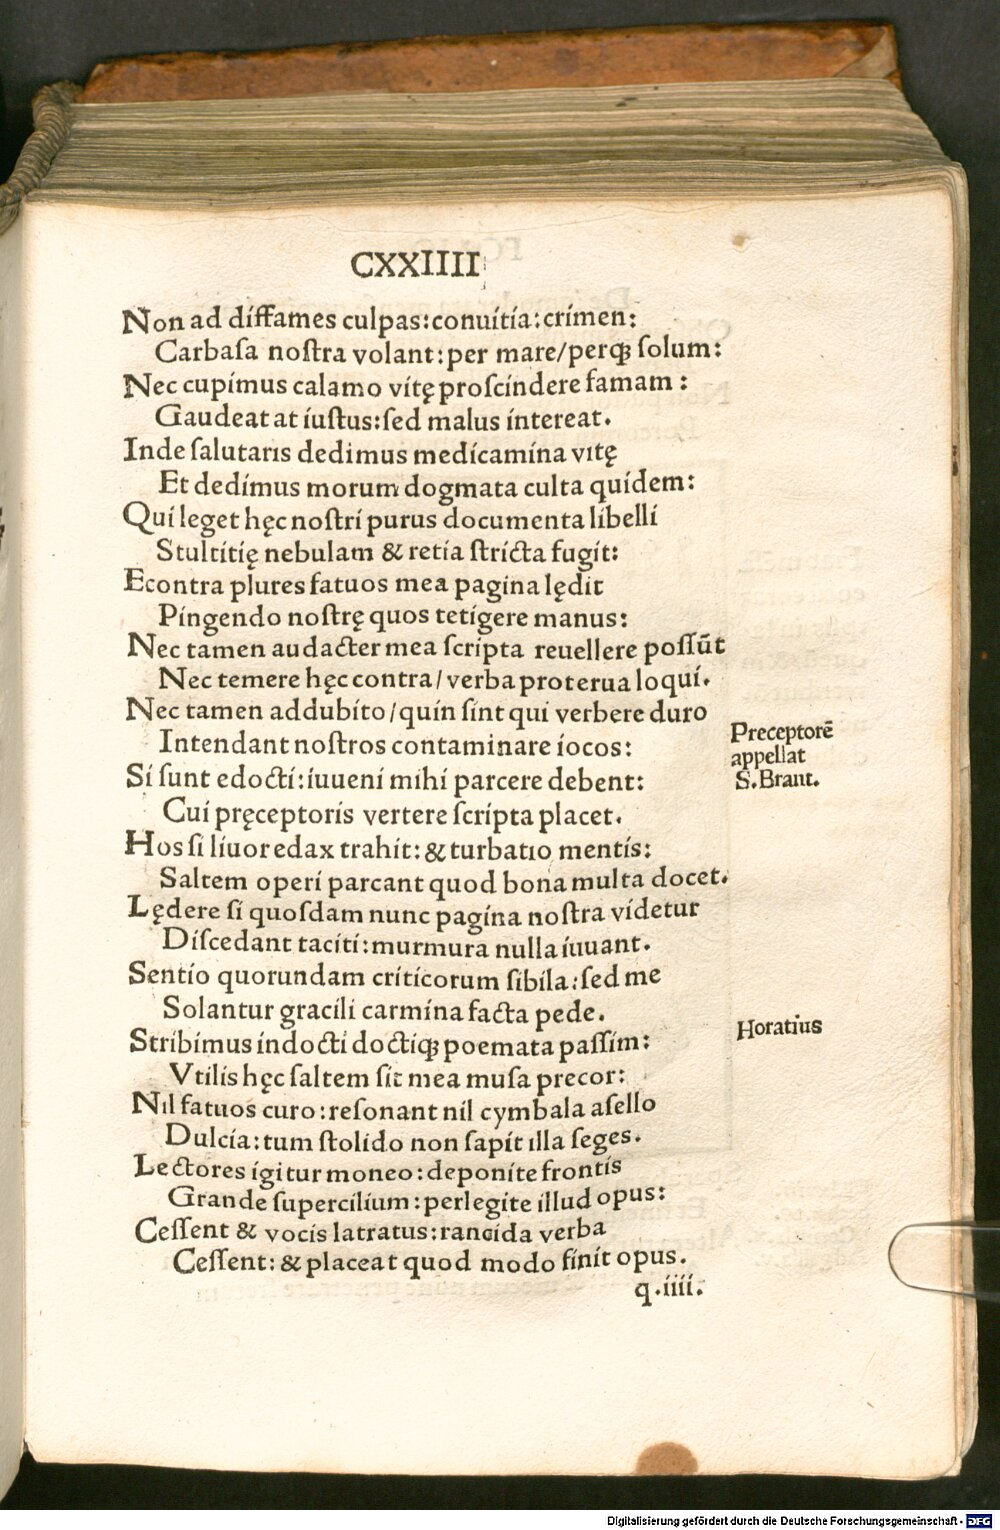 CXXIIII
Non ad diffames culpas:conuitia:crimen:
Carbaſa noſtra volant:per mare/perqꝫ ſolum:
Nec cupimus calamo vitę proſcindere famam :
Gaudeat at iuſtus:ſed malus intereat.
Inde ſalutaris dedimus medicamina vitę
Et dedimus morum dogmata culta quidem:
Qui leget hęc noſtri purus documenta libelli
Stultitię nebulam & retia ſtricta fugit:
Econtra plures fatuos mea pagina lędit
Pingendo noſtrę quos tetigere manus:
Nec tamen audacter mea ſcripta reuellere poſſūt
Nec temere hęc contra/verba proterua loqui.
Nec tamen addubito/quin ſint qui verbere duro
Intendant noſtros contaminare iocos:
Preceptorē
appellat
S.Brant.
Si ſunt edocti:iuueni mihi parcere debent:
Cui pręceptoris vertere ſcripta placet.
Hos ſi liuor edax trahit:& turbatio mentis:
Saltem operi parcant quod bona multa docet.
Lędere ſi quoſdam nunc pagina noſtra videtur
Diſcedant taciti:murmura nulla iuuant.
Sentio quorundam criticorum ſibila:ſed me
Solantur gracili carmina facta pede.
Horatius
Stribimus indocti doctiqꝫ poemata paſſim:
Vtilis hęc ſaltem ſit mea muſa precor:
Nil fatuos curo:reſonant nil cymbala aſello
Dulcia:tum ſtolido non ſapit illa ſeges.
Lectores igitur moneo:deponite frontis
Grande ſupercilium:perlegite illud opus:
Ceſſent & vocis latratus:rancida verba
Ceſſent:& placeat quod modo finit opus.
q.iiii.
Digitalisierung gefördert durch die Deutsche Forschungsgemeinschaft - DFG